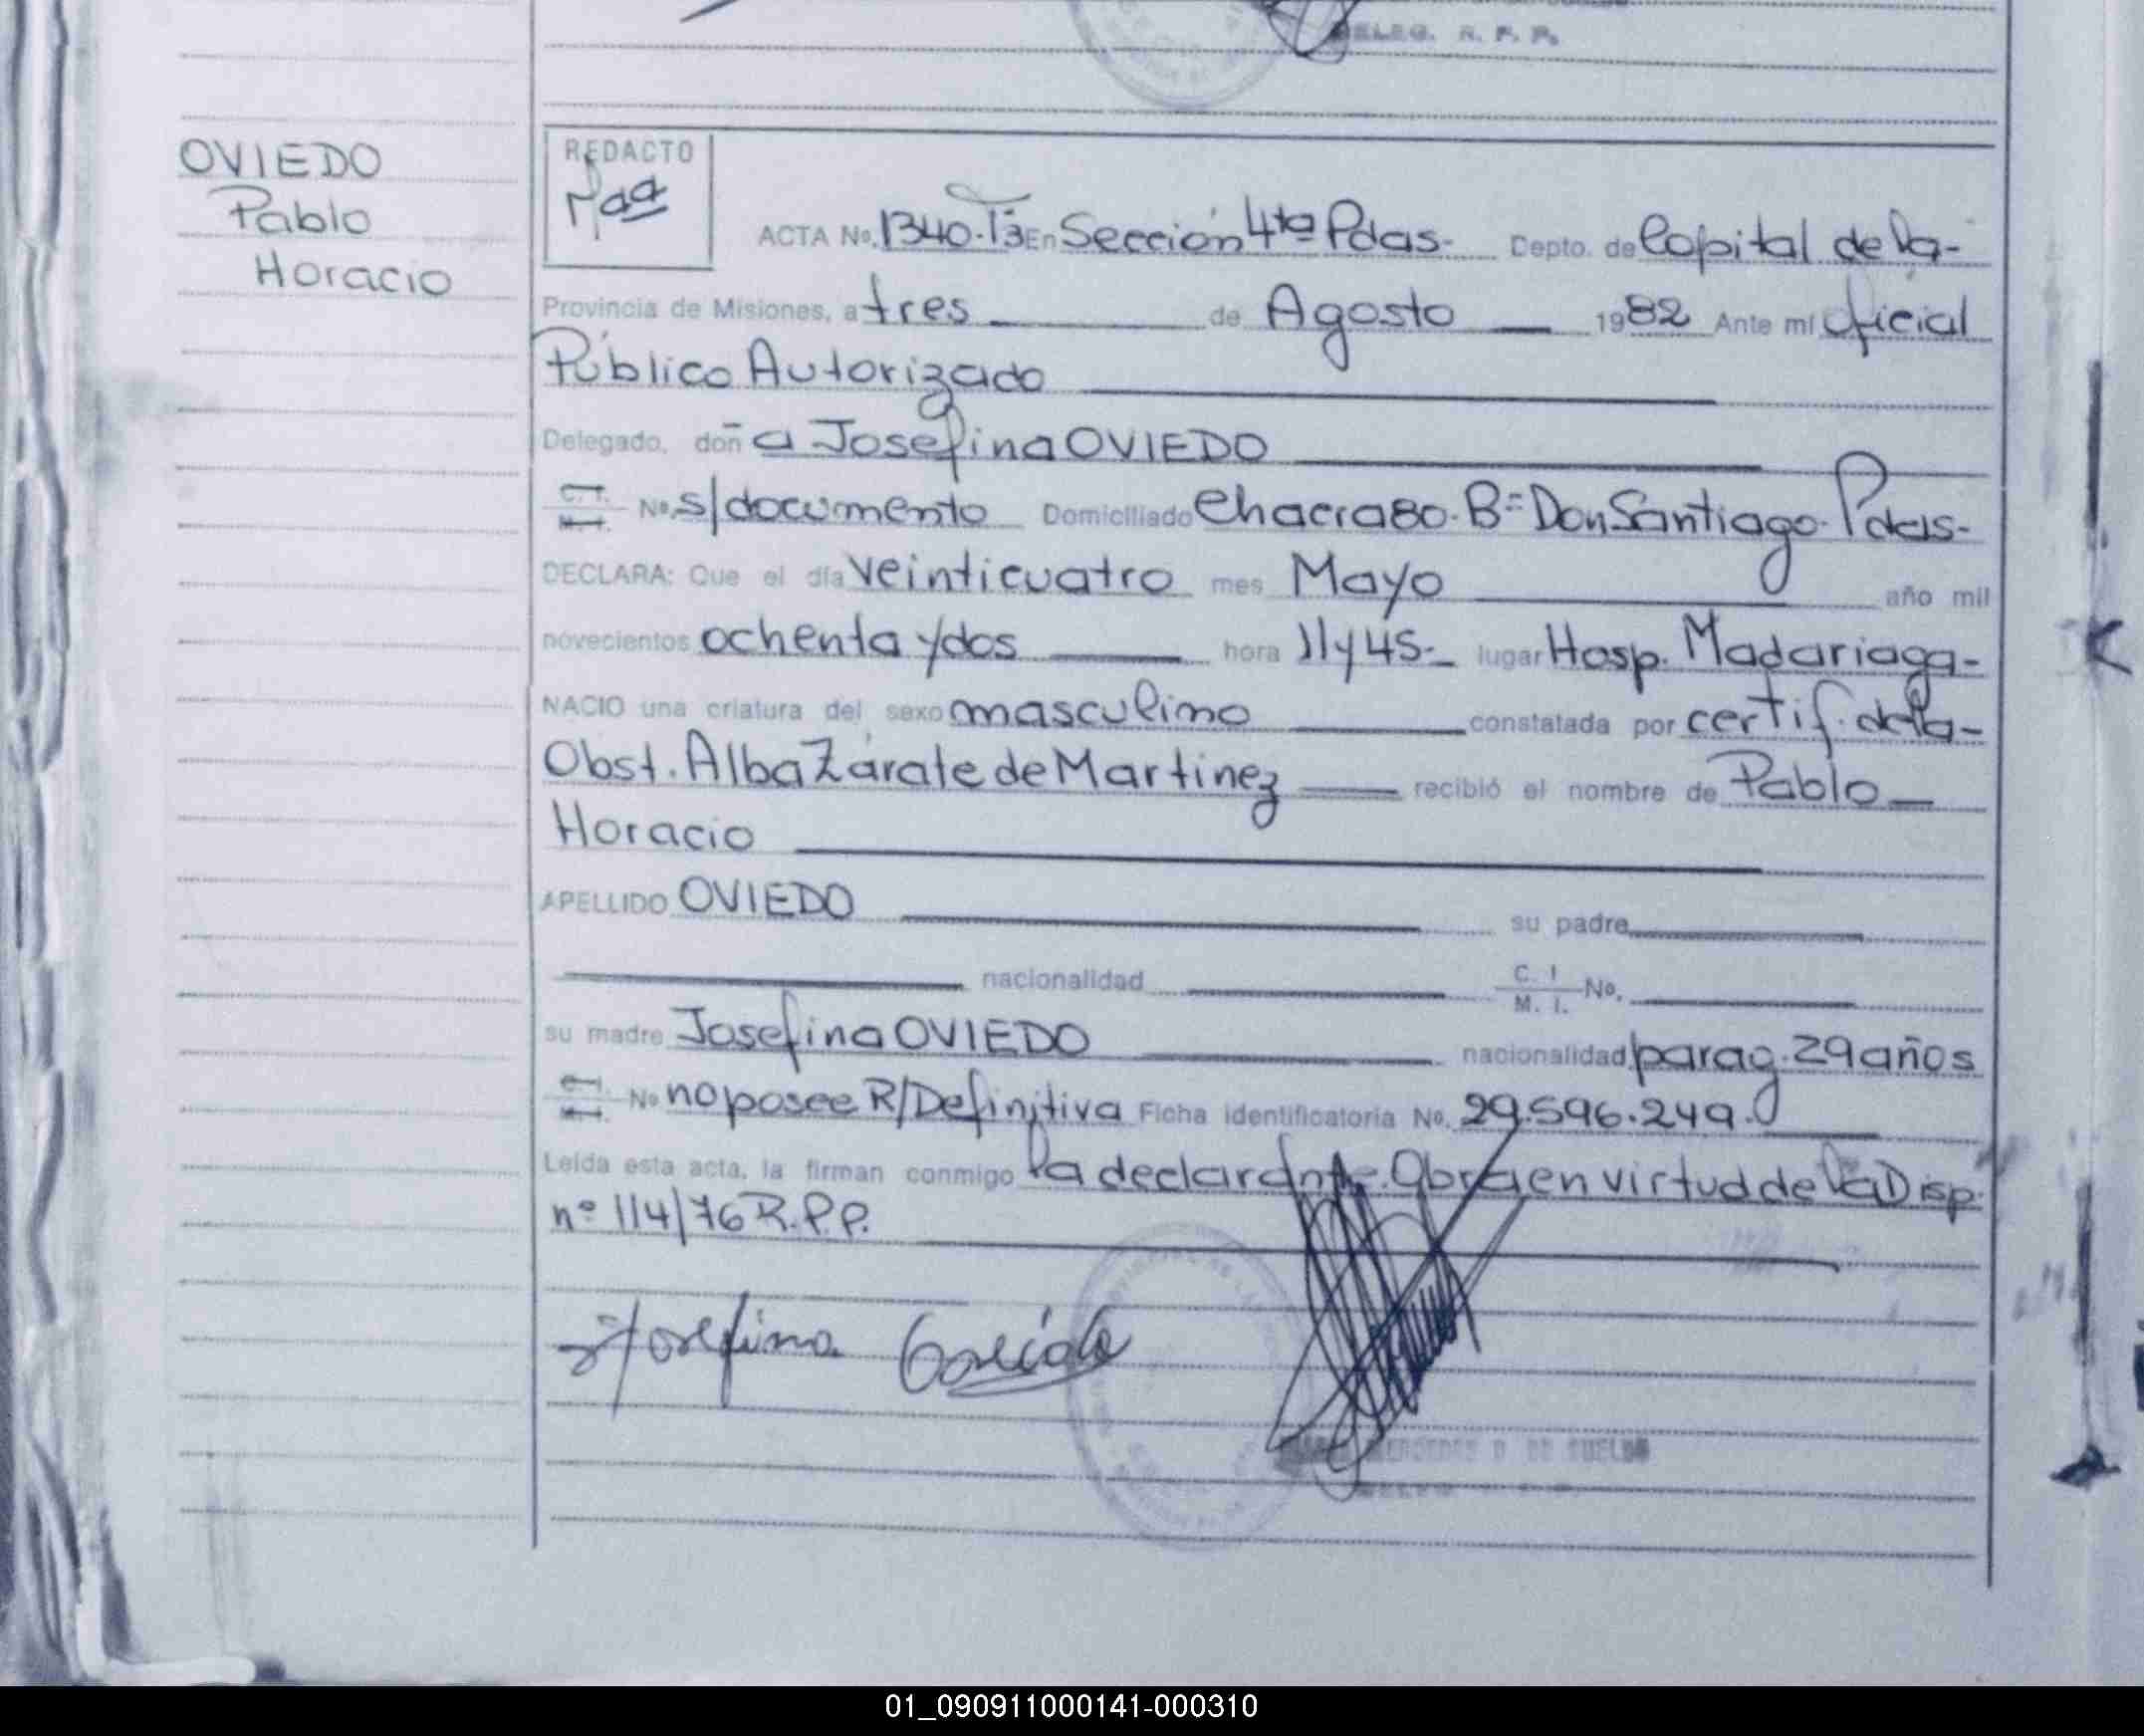 DELEG. R. P. P.
OVIEDO
Pablo
Horacio
REDACTO
ACTA No. 1340-T3 En Sección 4ta Pdas- Depto. de Capital de la-
Provincia de Misiones, a tres de Agosto 1982 Ante mí Oficial
Público Autorizado
Delegado, doña Josefina OVIEDO
C. I. M. I. No. s/documento Domiciliado Chacra 80. Bº Don Santiago. Pdas-
DECLARA: Que el día veinticuatro mes Mayo año mil
novecientos ochenta y dos hora 11 y 45- lugar Hosp. Madariaga-
NACIO una criatura del sexo masculino constatada por certif. de la-
Obst. Alba Zárate de Martinez recibió el nombre de Pablo
Horacio
APELLIDO OVIEDO su padre
nacionalidad C. I M. I. No.
su madre Josefina OVIEDO nacionalidad parag. 29 años
C. I. M. I. No no posee R/Definitiva Ficha identificatoria No. 29.596.249.
Leída esta acta, la firman conmigo la declarante. Obra en virtud de la Disp.
nº 114/76 R.P.P.
Josefina Oviedo
MERCEDES D. DE
01_090911000141-000310